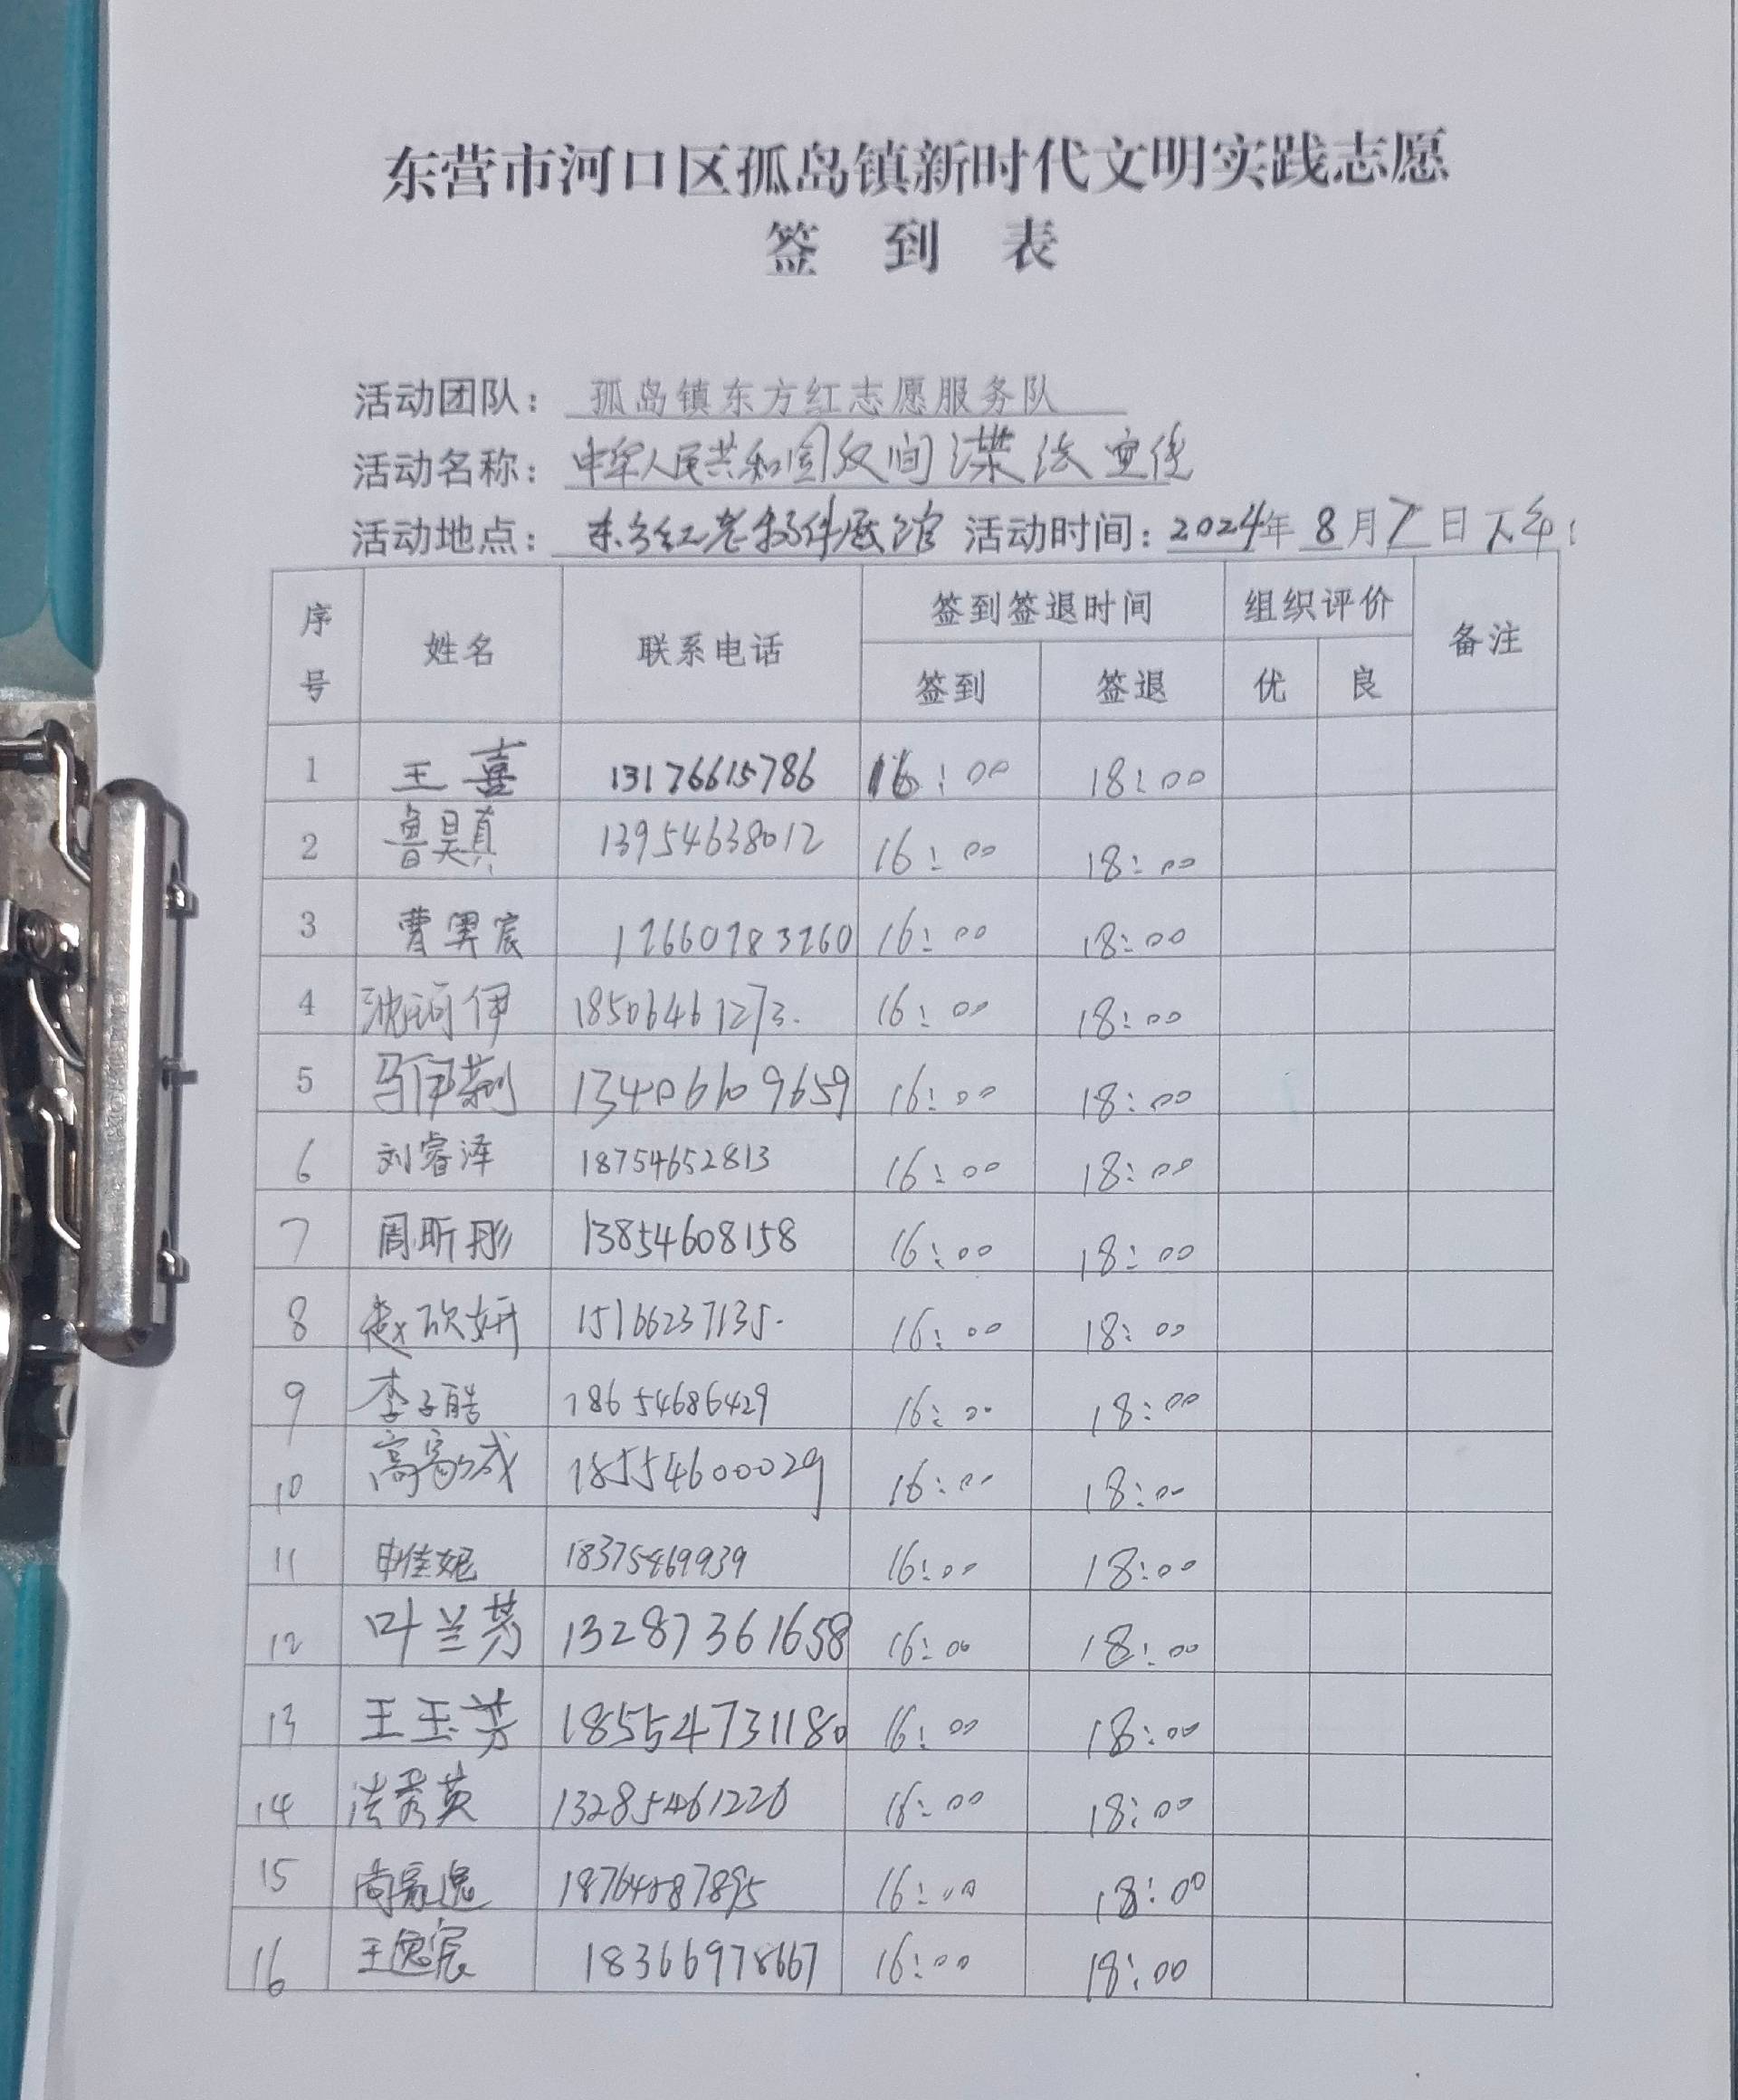 东营市河口区孤岛镇新时代文明实践志愿
签 到 表
活动团队: 孤岛镇东方红志愿服务队
活动名称: 中华人民共和国反间谍法宣传
活动地点: 东方红老物件展馆 活动时间: 2024年 8月7日下午:
序号 姓名 联系电话 签到签退时间 组织评价 备注
签到 签退 优 良
1 王喜 13176615786 16:00 18:00
2 鲁昊真 13954638012 16:00 18:00
3 曹 宸 17660783760 16:00 18:00
4 沈珂伊 18506461273. 16:00 18:00
5 马伊莉 13406609659 16:00 18:00
6 刘睿泽 18754652813 16:00 18:00
7 周昕彤 13854608158 16:00 18:00
8 赵欣妍 15166237135. 16:00 18:00
9 李子皓 18654686429 16:00 18:00
10 高 成 18554600029 16:00 18:00
11 申佳妮 18375469939 16:00 18:00
12 叶兰芳 13287361658 16:00 18:00
13 王玉芳 18554731180 16:00 18:00
14 法秀英 13285461226 16:00 18:00
15 尚家逸 16:00 18:00
16 王逸宸 18366978667 16:00 18:00